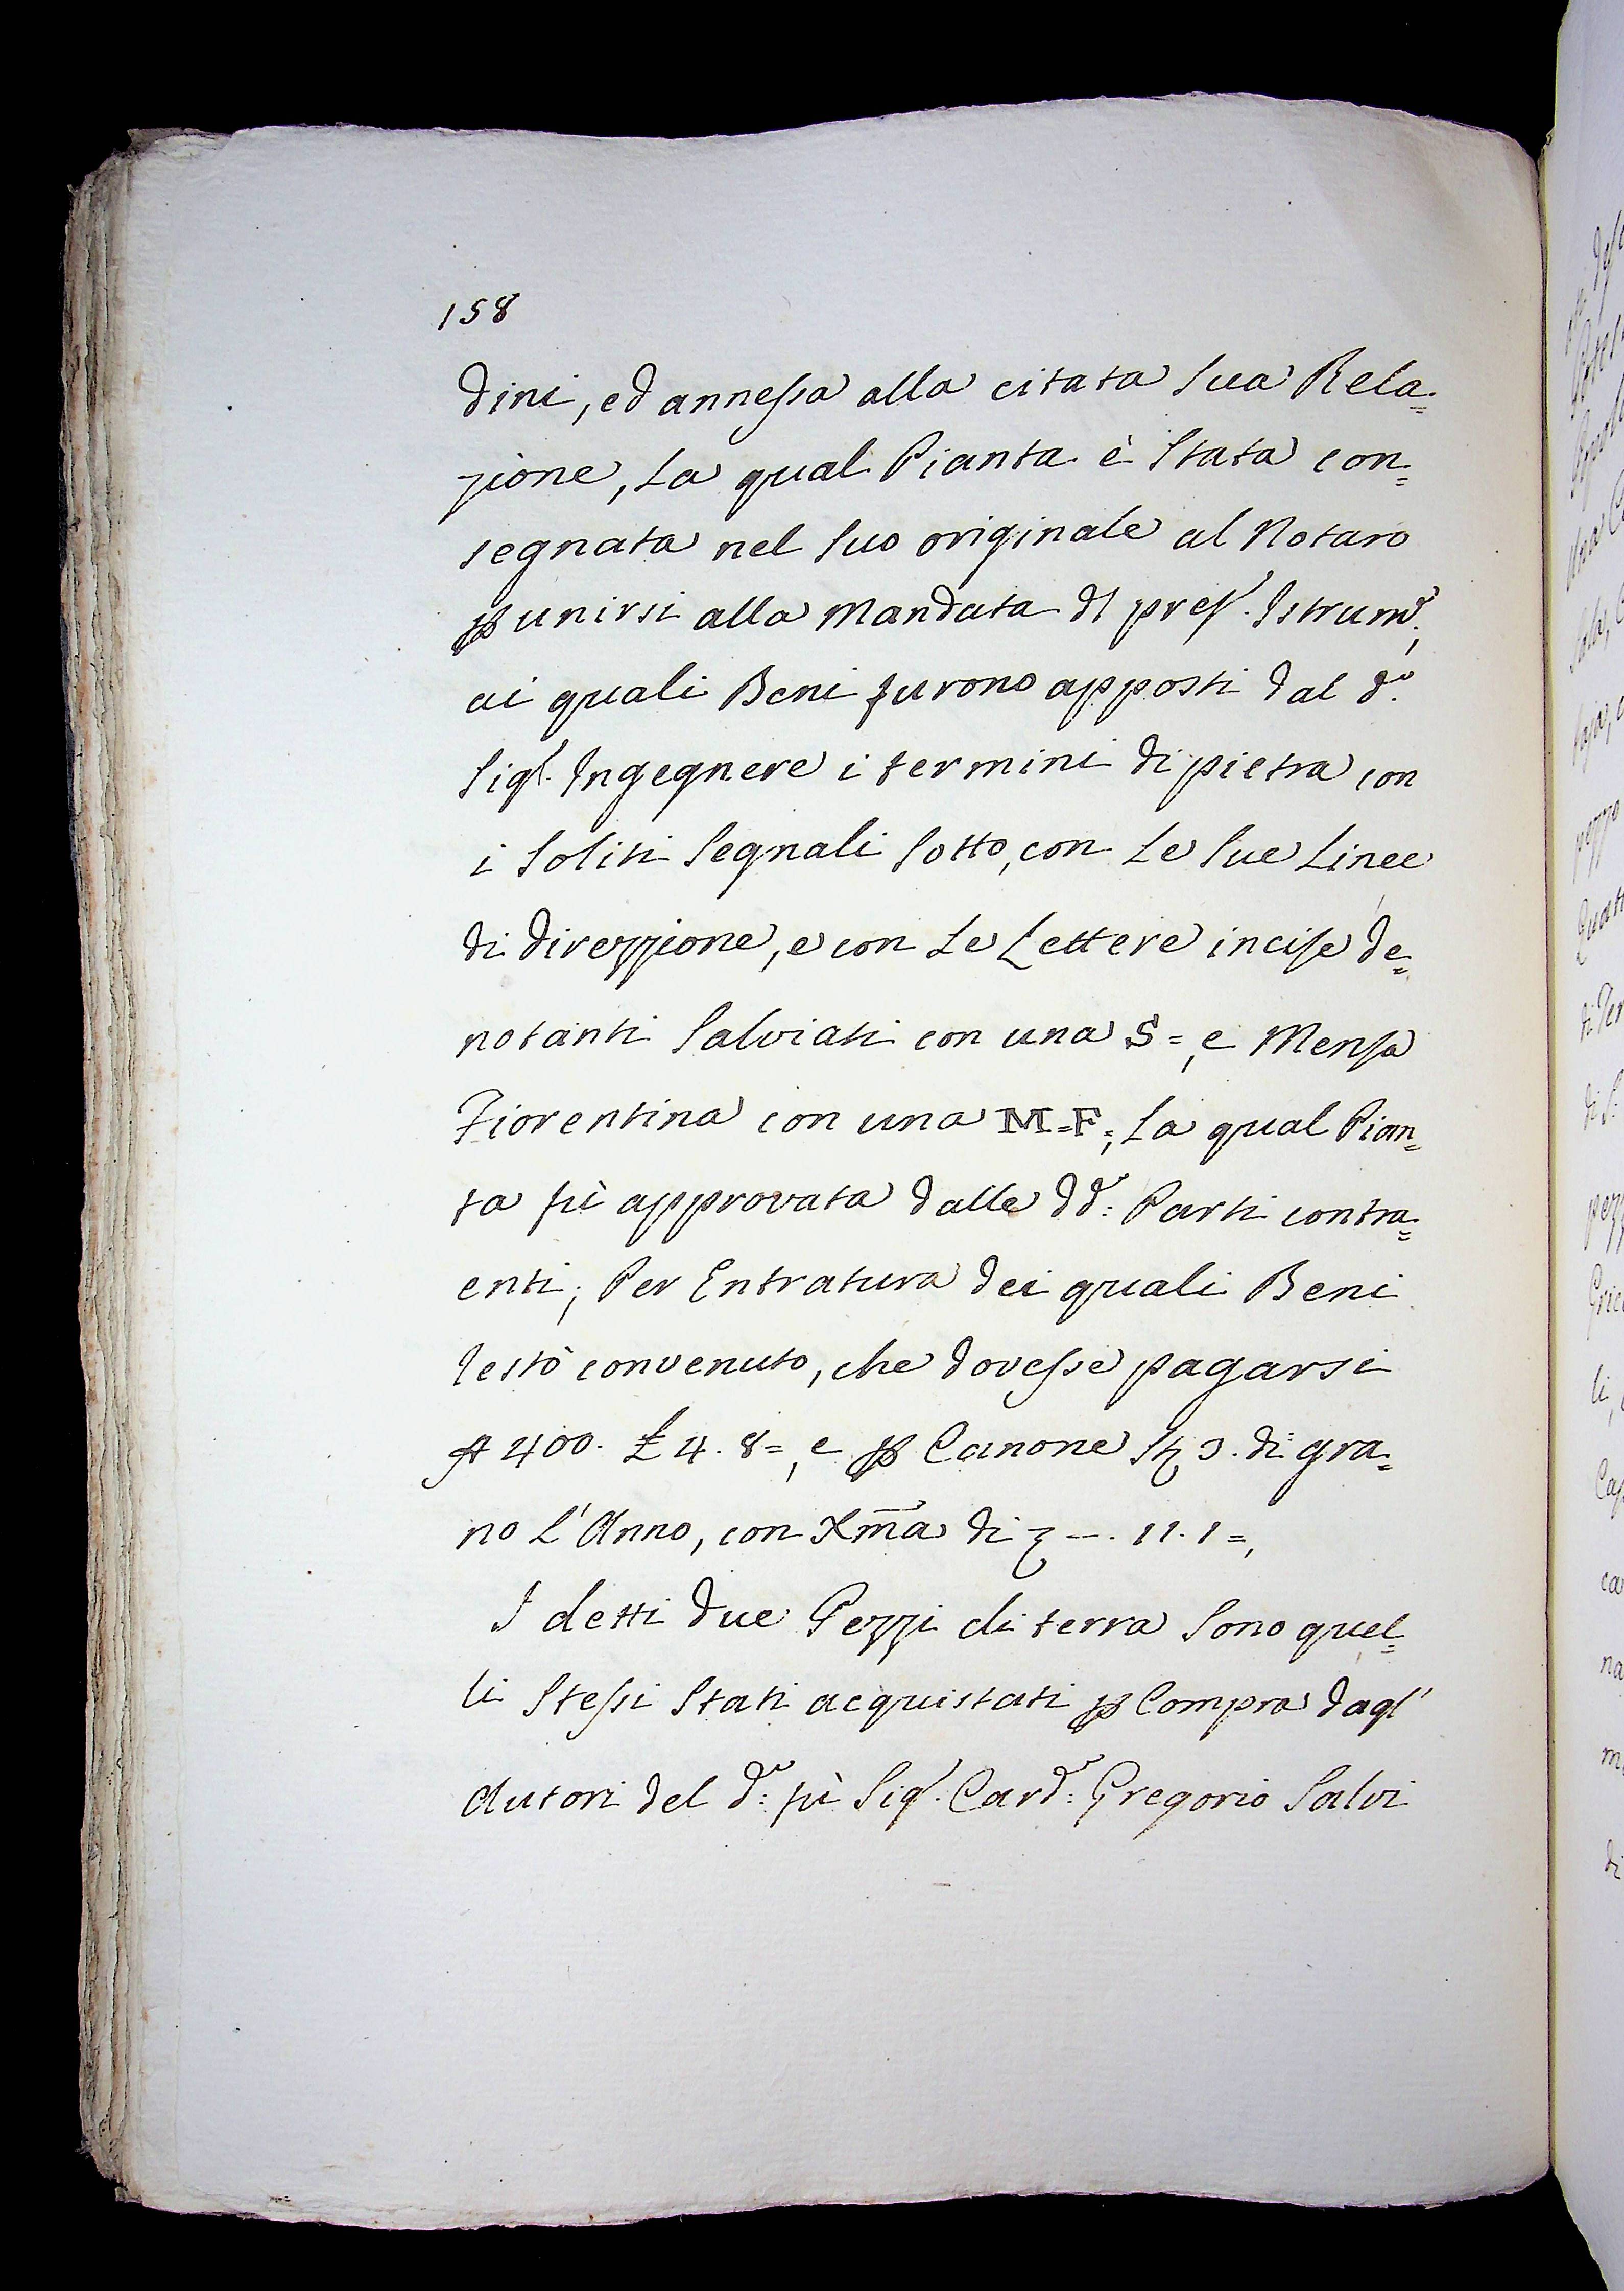 158
dini, ed annessa alla citata sua Rela=
zione, la qual Pianta è stata con=
segnata nel suo originale al Notaro
ꝑ unirsi alla Mandata dl pres. Istrum.to,
ai quali Beni furono apposti dal d.o
Sigr. Ingegnere i termini di pietra con
i soliti segnali sotto, con le sue linee
di direzzione, e con le Lettere incise de=
notanti Salviati con una S=, e Mensa
Fiorentina con una M=F=, la qual Pian=
ta fù approvata dalle dd.e: Parti contra=
enti; Per Entratura dei quali Beni
restò convenuto, che dovesse pagarsi
400. £ 4. 8=, e ꝑ Canone 3. di gra=
no l'Anno, con Xm̃a di —. 11. 1=,
I detti due Pezzi di terra sono quel=
li stessi stati acquistati ꝑ Compra dagl'
Autori del d.o: fù Sig.r Card.e: Gregorio Salvi